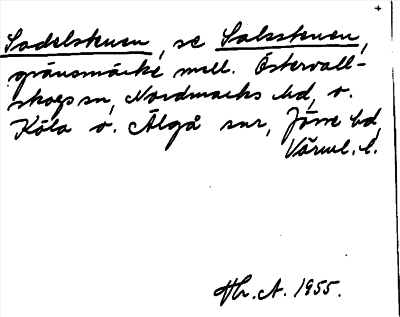 Sadelstuen, se Salsstuen,
gränsmärke mell. Östervall-
skogs sn, Nordmarks hd, o.
Köla o. Älgå snr, Jösse hd,
Värml. l.
Hr. A. 1955.